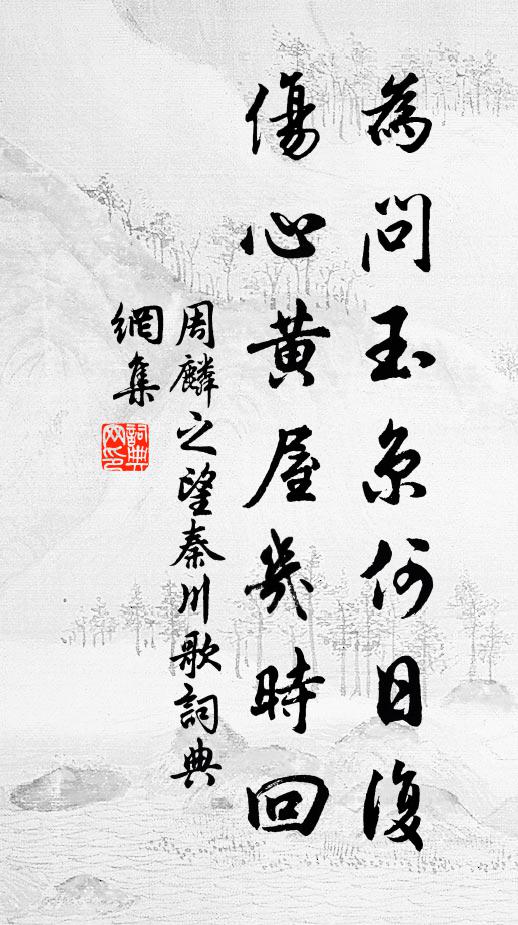 為問玉京何日復
傷心黃屋幾時回
周麟之望秦川歌詞典
網集
詞典
網印